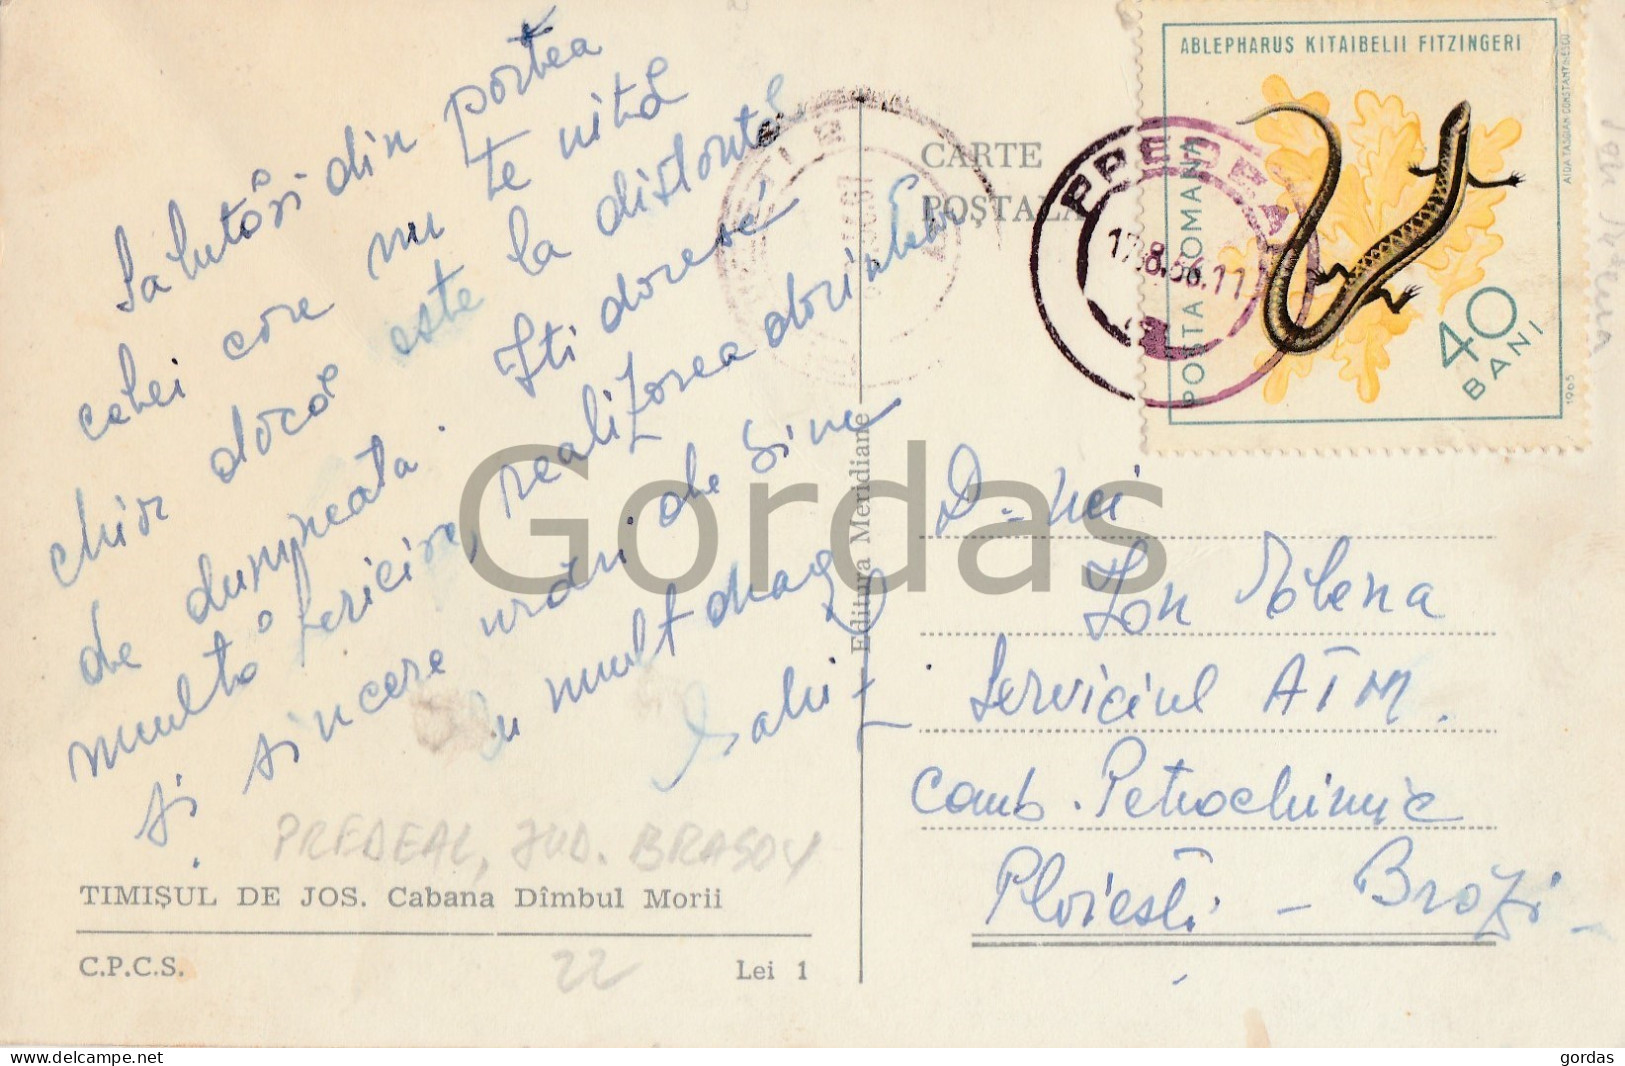 Salutări din partea
celei care nu te uită
chiar dacă este la distanță
de dumneata. Îți doresc
multă fericire, realizarea dorințelor
și sincere urări de bine
cu mult drag
Gabi
TIMIȘUL DE JOS. Cabana Dîmbul Morii
C.P.C.S.
Lei 1
PREDEAL, JUD. BRASOV
22
Editura Meridiane
CARTE
POȘTALĂ
PREDEAL
17.8.66.11
ABLEPHARUS KITAIBELII FITZINGERI
POSTA ROMANA
40
BANI
1965
AIDA TASGIAN CONSTANTINESCU
D-nei
Ion Elena
Serviciul ATM.
Comb. Petrochimic
Ploiești - Brazi -
Gordas
gordas
delcampe.net